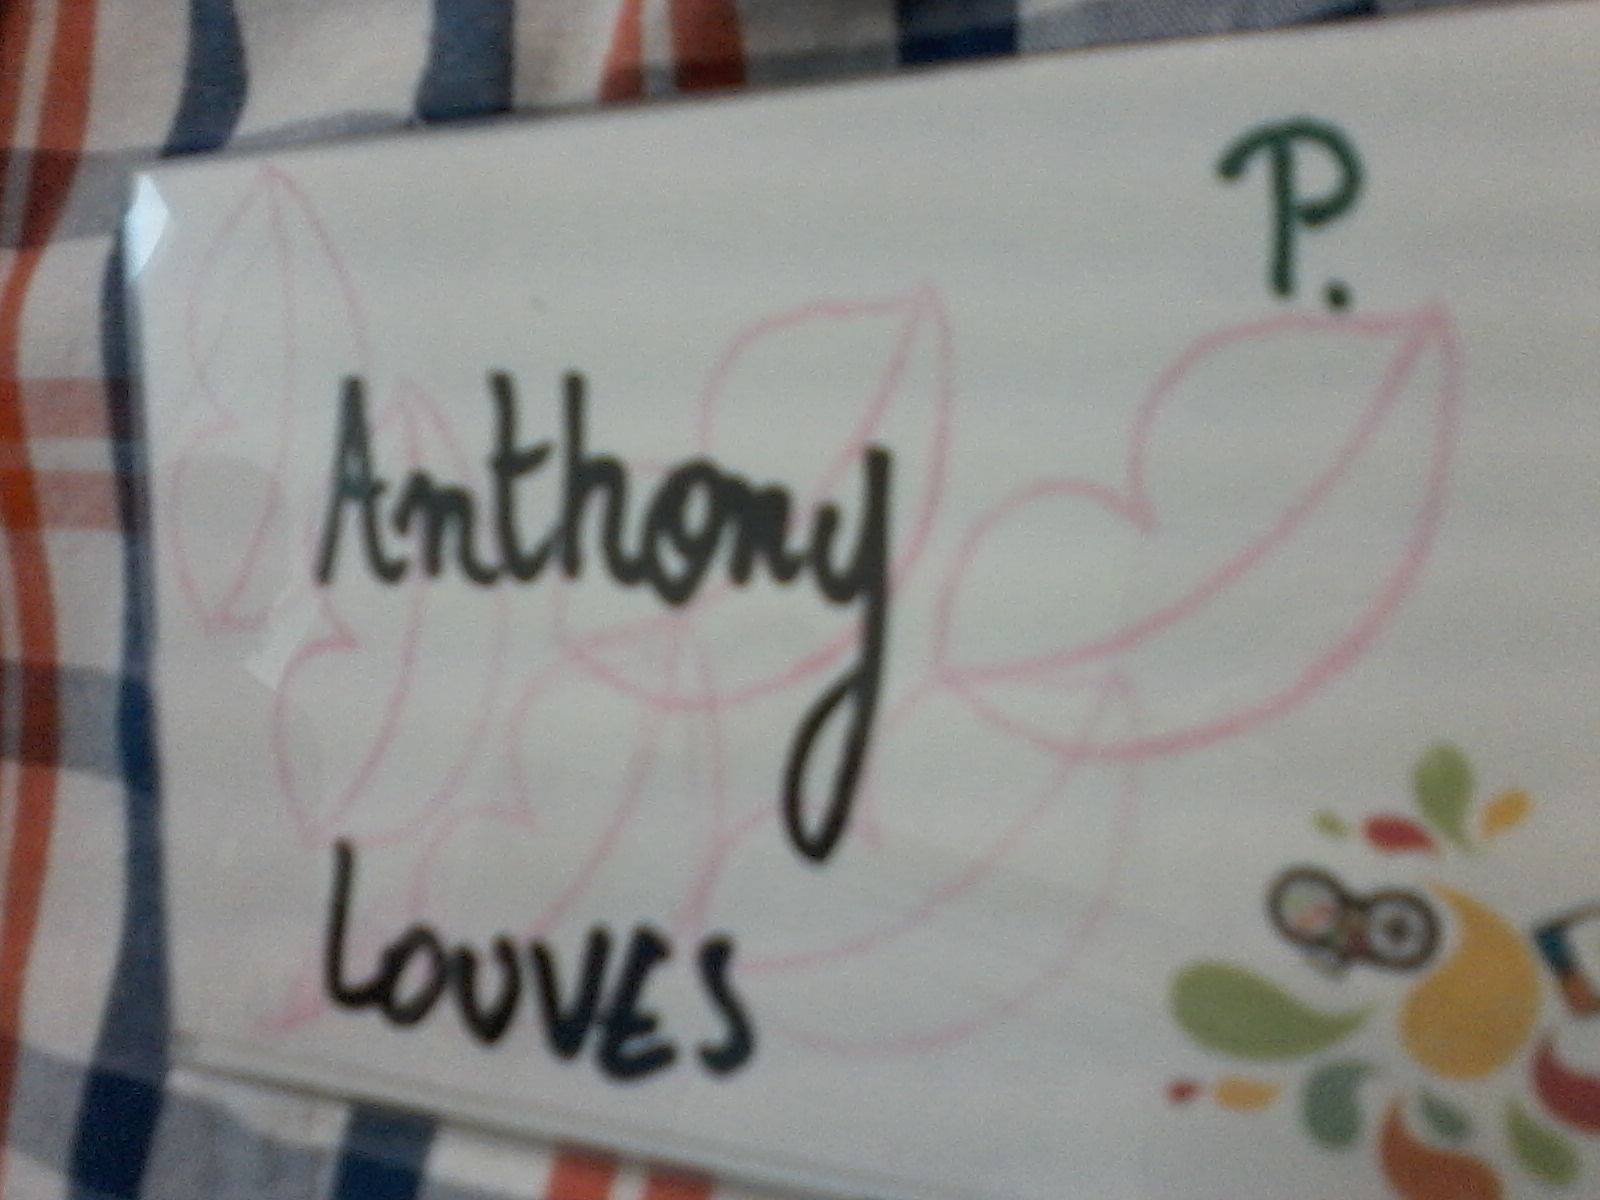 P.
Anthony
LOUVES